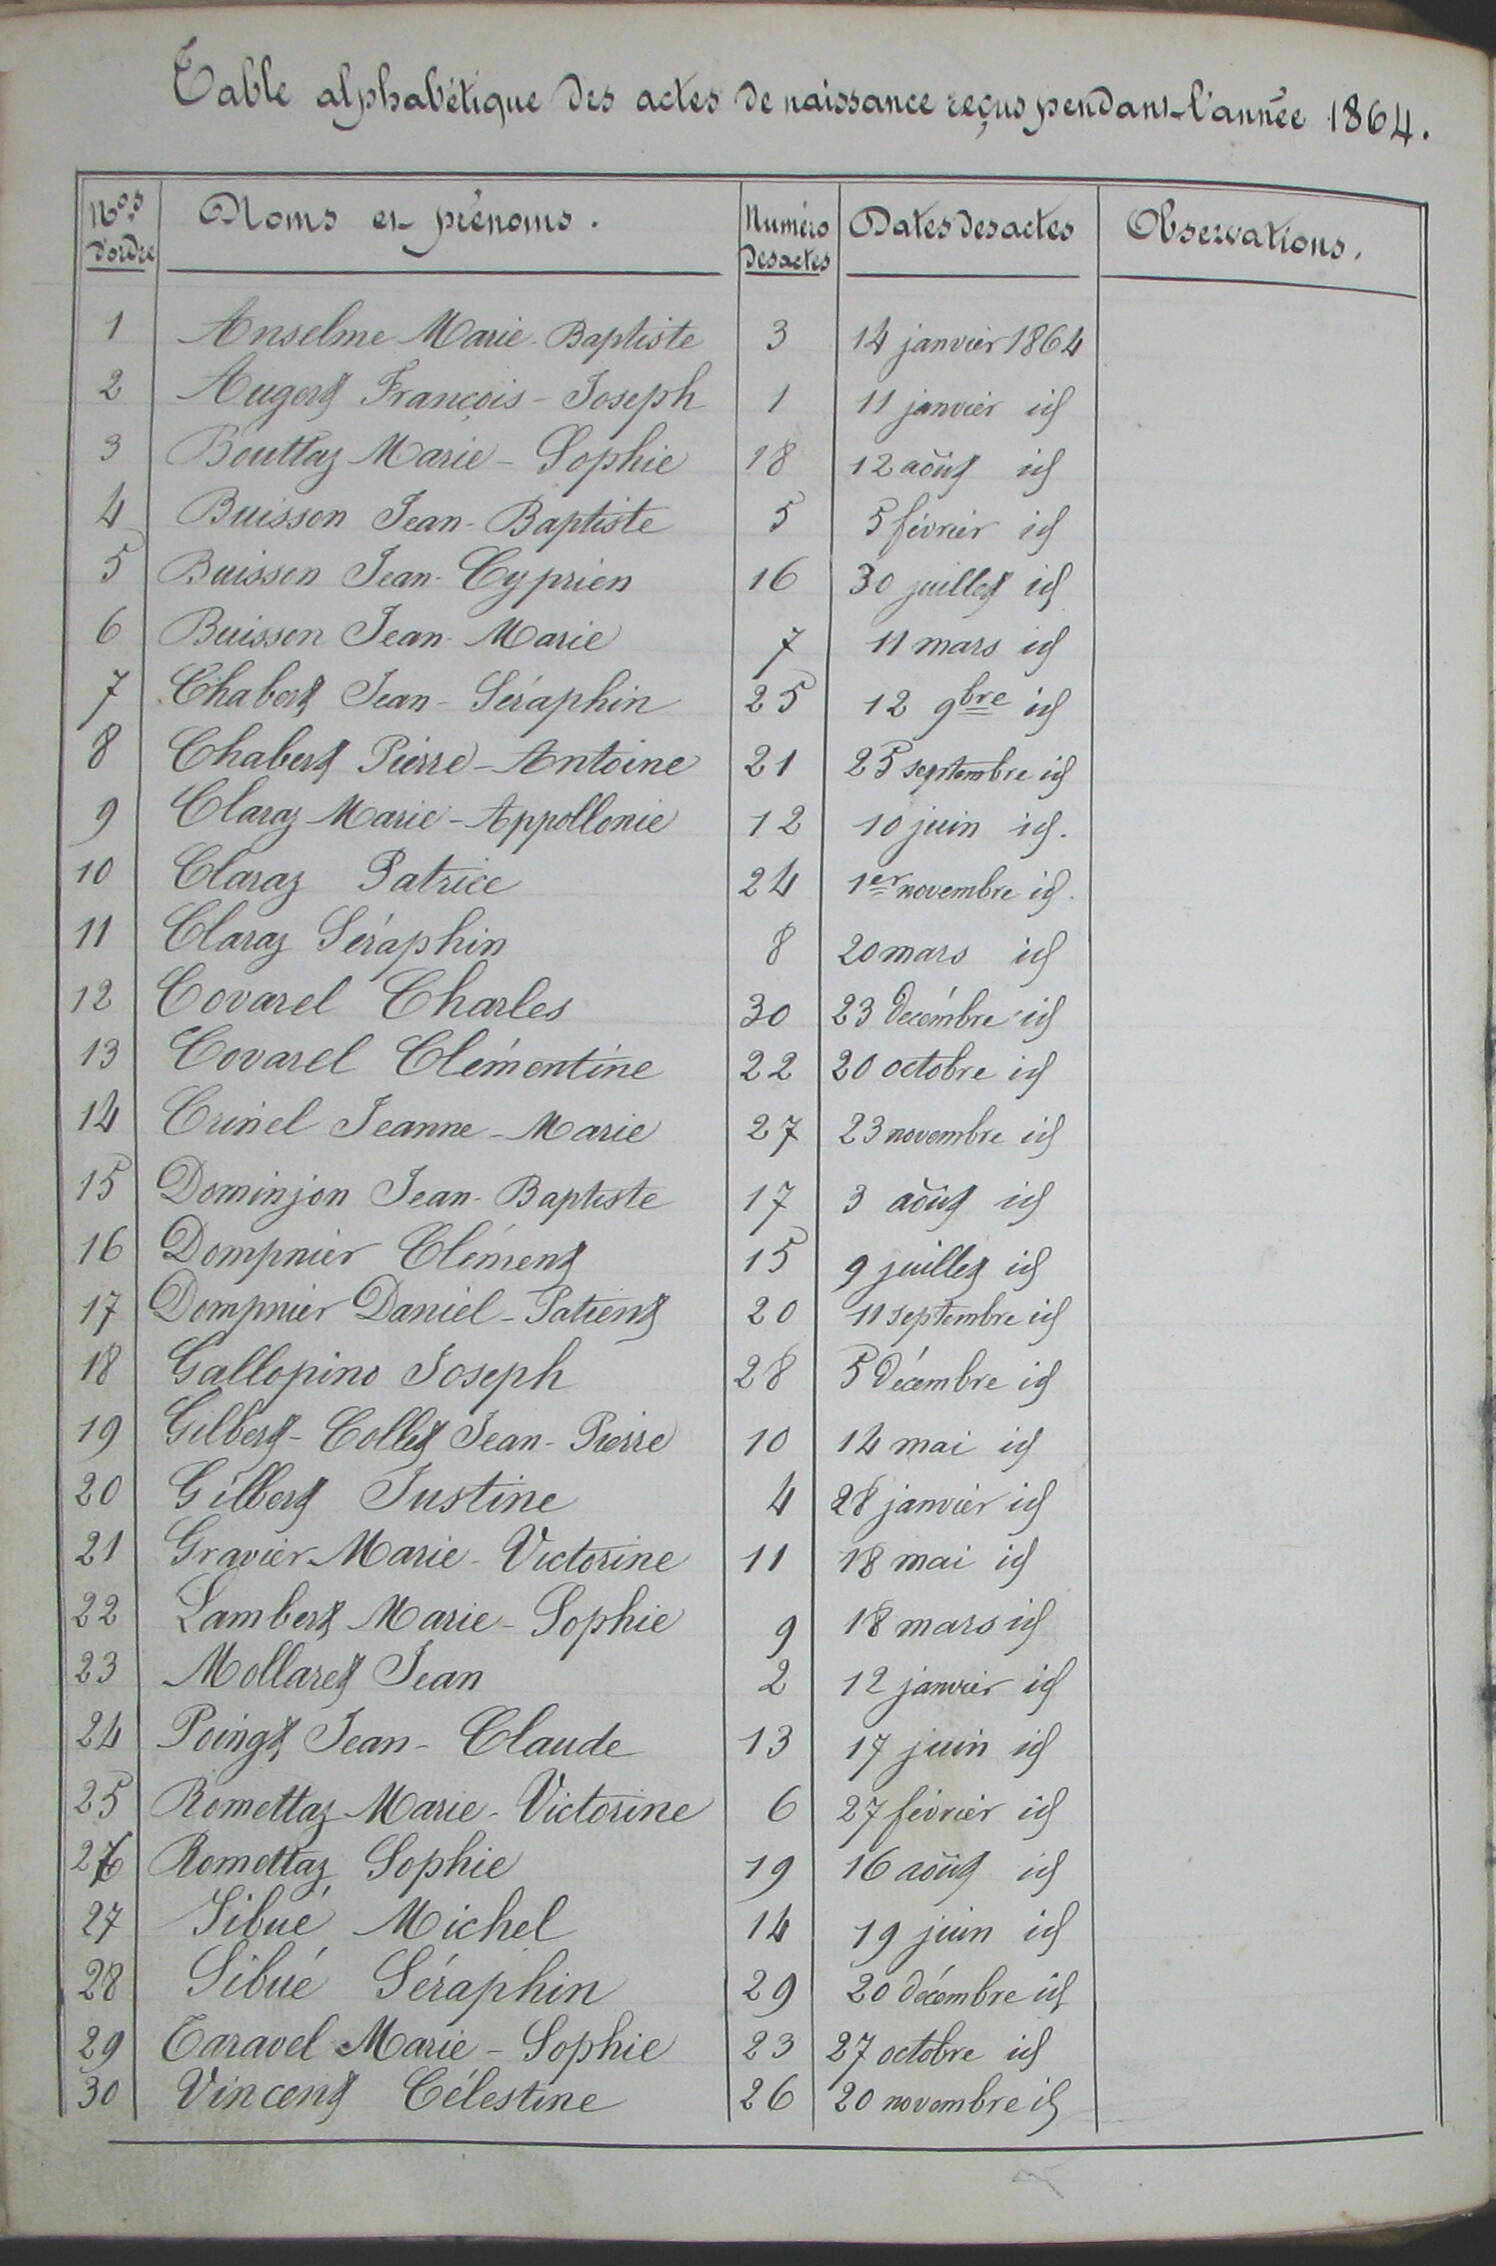 Table alphabétique des actes de naissance reçus pendant l'année 1864.
Nos d'ordre Noms et prénoms. Numéro des actes Dates des actes Observations.
1 Anselme Marie-Baptiste 3 14 janvier 1864
2 Augert François-Joseph 1 11 janvier id
3 Bouttaz Marie-Sophie 18 12 août id
4 Buisson Jean-Baptiste 5 5 février id
5 Buisson Jean-Cyprien 16 30 juillet id
6 Buisson Jean-Marie 7 11 mars id
7 Chabert Jean-Séraphin 25 12 9bre id
8 Chabert Pierre-Antoine 21 25 septembre id
9 Claraz Marie-Appollonie 12 10 juin id.
10 Claraz Patrice 24 1er novembre id.
11 Claraz Séraphin 8 20 mars id
12 Covarel Charles 30 23 décembre id
13 Covarel Clémentine 22 20 octobre id
14 Crinel Jeanne-Marie 27 23 novembre id
15 Dominjon Jean-Baptiste 17 3 août id
16 Dompnier Clément 15 9 juillet id
17 Dompnier Daniel-Patient 20 11 septembre id
18 Gallopino Joseph 28 5 décembre id
19 Gilbert-Collet Jean-Pierre 10 14 mai id
20 Gilbert Justine 4 28 janvier id
21 Gravier Marie-Victorine 11 18 mai id
22 Lambert Marie-Sophie 9 18 mars id
23 Mollaret Jean 2 12 janvier id
24 Poingt Jean-Claude 13 17 juin id
25 Romettaz Marie-Victorine 6 27 février id
26 Romettaz Sophie 19 16 août id
27 Sibué Michel 14 19 juin id
28 Sibué Séraphin 29 20 décembre id
29 Taravel Marie-Sophie 23 27 octobre id
30 Vincent Célestine 26 20 novembre id